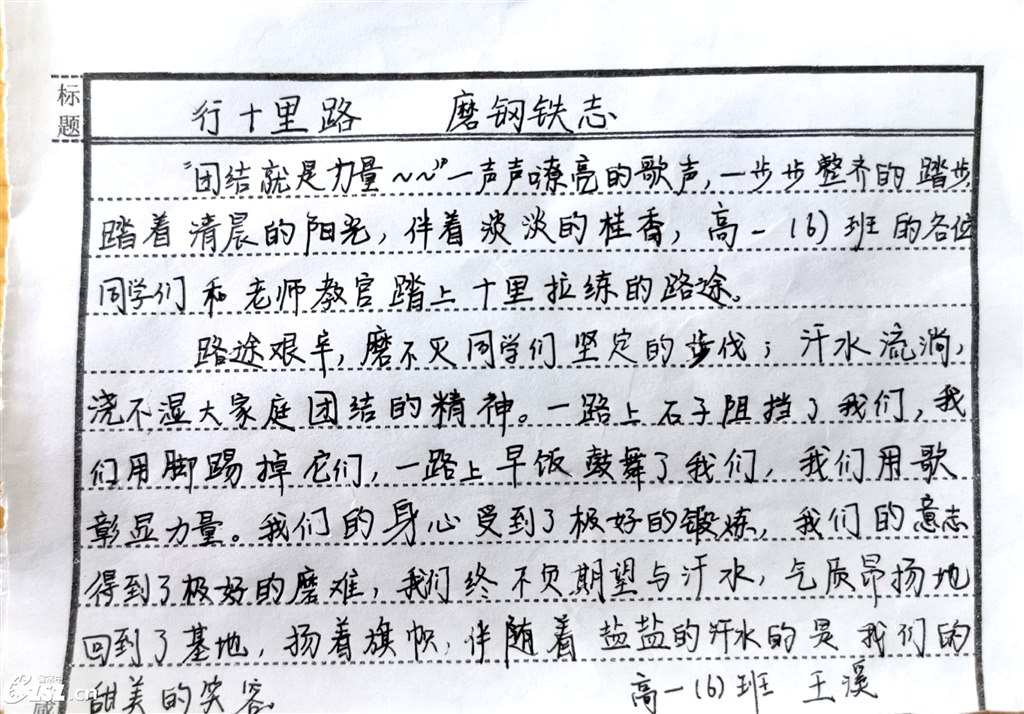 标题
行十里路 磨钢铁志
"团结就是力量~~"一声声嘹亮的歌声，一步步整齐的踏步
踏着清晨的阳光，伴着淡淡的桂香，高一(6)班的各位
同学们和老师教官踏上十里拉练的路途。
路途艰辛，磨不灭同学们坚定的步伐；汗水流淌，
浇不湿大家庭团结的精神。一路上石子阻挡了我们，我
们用脚踢掉它们，一路上早饭鼓舞了我们，我们用歌
彰显力量。我们的身心受到了极好的锻炼，我们的意志
得到了极好的磨难，我们终不负期望与汗水，气质昂扬地
回到了基地，扬着旗帜，伴随着盐盐的汗水的是我们的
甜美的笑容。
高一(6)班 王溪